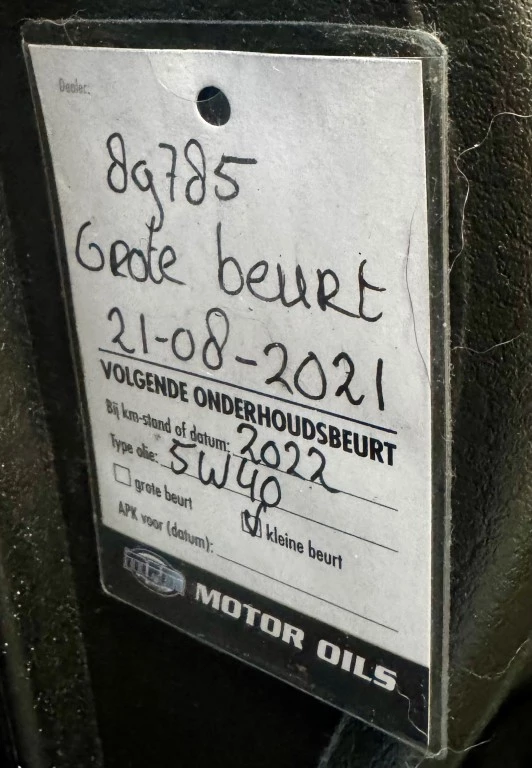 Dealer:
89785
Grote beurt
21-08-2021
VOLGENDE ONDERHOUDSBEURT
Bij km-stand of datum: 2022
Type olie: 5W40
grote beurt
kleine beurt
APK voor (datum):
MPM MOTOR OILS